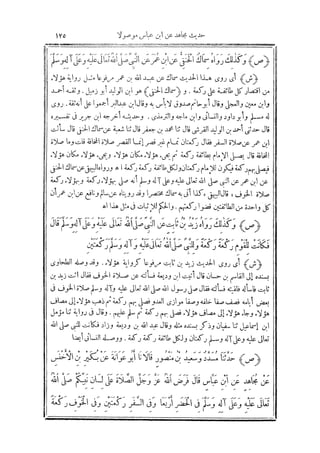 حديث مجاهد عن ابن عباس موصولا ١٢٥
(ص) وكذلك رواه سماك الحنفي عن ابن عمر عن النبي صلى الله تعالى عليه وعلى آله وسلم
(ش) أى روى هذا الحديث سماك عن عبد الله بن عمر مرفوعا مثل رواية هؤلاء
من اقتصار كل طائفة على ركعة. و (سماك الحنفي) هو ابن الوليد أبو زميل. وثقه أحمد
وابن معين والعجلى وقال أبو حاتم صدوق لا بأس به وقال ابن عبد البر أجمعوا على أنه ثقة. روى
له مسلم وأبو داود والنسائى وابن ماجه والترمذى. وحديثه أخرجه ابن جرير فى تفسيره
قال حدثنى أحمد بن الوليد القرشى قال ثنا محمد بن جعفر قال ثنا شعبة عن سماك الحنفى قال سألت
ابن عمر عن صلاة السفر فقال ركعتان تمام غير قصر إنما القصر صلاة المخافة قلت وما صلاة
المخافة قال يصلى الإمام بطائفة ركعة ثم يجىء هؤلاء مكان هؤلاء ويجىء هؤلاء مكان هؤلاء
فيصلى بهم ركعة فيكون للإمام ركعتان ولكل طائفة ركعة ركعة اه ورواه البيهقى عن سماك الحنفى
عن ابن عمر عن النبى صلى الله تعالى عليه وعلى آله وسلم أنه صلى بهؤلاء ركعة وبهؤلاء ركعة
صلاة الخوف، قال البيهقى وكذا أتى به سماك مختصرا وقد روينا عن سالم ونافع عن ابن عمر أن
كل واحدة من الطائفتين قضوا ركعتهم. والحكم للإثبات فى مثل هذا اه
(ص) وكذلك رواه زيد بن ثابت عن النبي صلى الله تعالى عليه وعلى آله وسلم قال
فكانت للقوم ركعة ركعة وللنبي صلى الله تعالى عليه وآله وسلم ركعتين
(ش) أى روى الحديث زيد بن ثابت مرفوعا كرواية هؤلاء. وقد وصله الطحاوى
بسنده إلى القاسم بن حسان قال أتيت ابن وديعة فسألته عن صلاة الخوف فقال ائت زيد بن
ثابت فاسأله فلقيته فسألته فقال صلى رسول الله صلى الله تعالى عليه وعلى آله وسلم صلاة الخوف فى
بعض أيامه فصف صفا خلفه وصفا موازى العدو فصلى بهم ركعة ثم ذهب هؤلاء إلى مصاف
هؤلاء وجاء هؤلاء إلى مصاف هؤلاء فصلى بهم ركعة ثم سلم عليهم. وقال فى رواية ثنا مؤمل
ابن إسماعيل ثنا سفيان وذكر بسنده مثله وقال عبد الله بن وديعة وزاد فكانت للنبى صلى الله
تعالى عليه وعلى آله وسلم ركعتان ولكل طائفة ركعة ركعة. ووصله النسائى أيضا
(ص) حدثنا مسدد وسعيد بن منصور قالا نا أبو عوانة عن بكير بن الأخنس
عن مجاهد عن ابن عباس قال فرض الله عز وجل الصلاة على لسان نبيكم صلى الله
تعالى عليه وعلى آله وسلم في الحضر أربعا وفي السفر ركعتين وفي الخوف ركعة